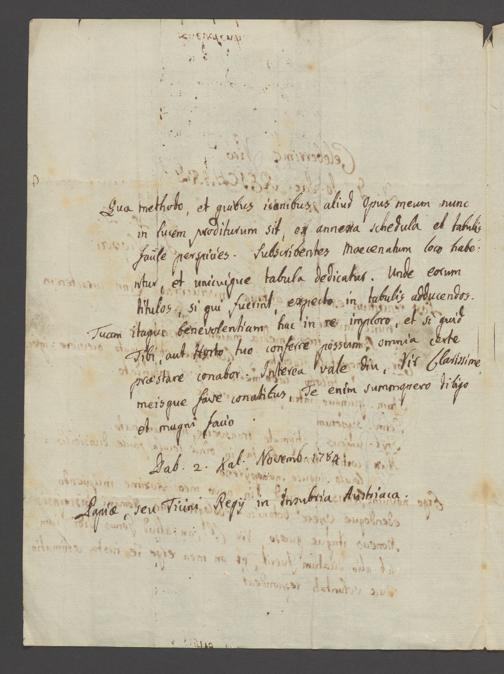 Qua methodo, et quibus iconibus aliud Opus meum nunc
in lucem proditurum sit, ex annexa schedula et tabulis
facile perspicies. Subscribentes Maecenatum loco habe-
ntur, et unicuique tabula dedicatur. Unde eorum
titulos, si qui fuerint, expecto, in tabulis adducendos.
Tuam itaque benevolentiam hac in re imploro, et si quid
Tibi, aut Horto tuo conferre possum, omnia certe
præstare conabor. Interea vale diu, Vir Clarissime
meisque fave conatibus, Te enim summopere diligo
et magni facio.
Dab. 2. Kal. Novemb. 1784
Papiæ, seu Ticini Regij in Insubria Austriaca.